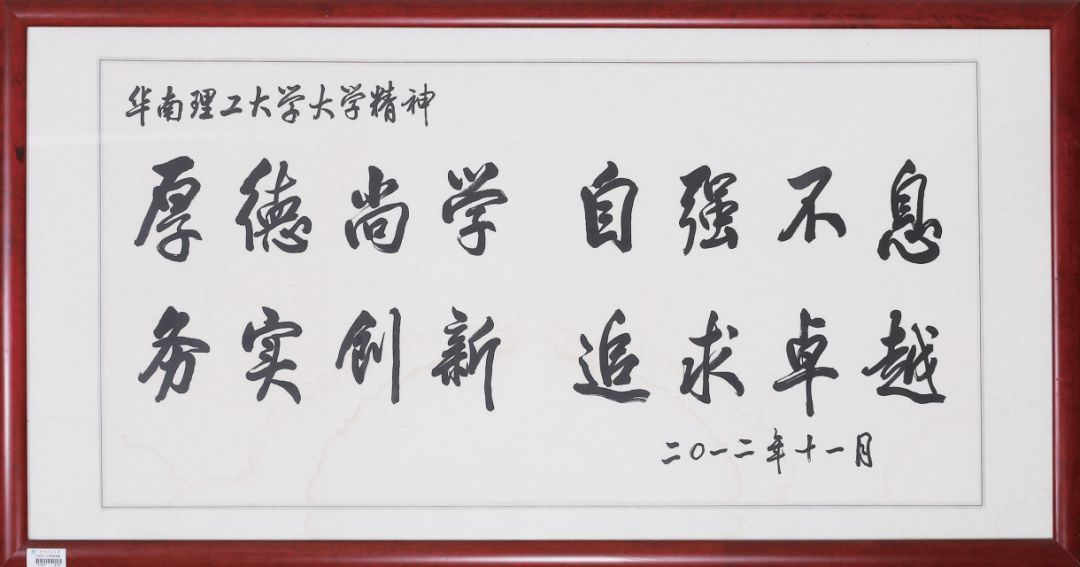 华南理工大学大学精神
厚德尚学 自强不息
务实创新 追求卓越
二〇一二年十一月